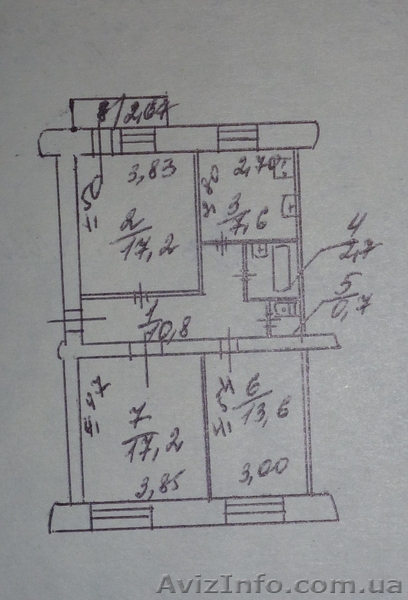 8/2,67
3,83
2,70
4,50
2/17,2
2,80
3/7,6
4/2,7
5/0,7
1/10,8
4,47
7/17,2
3,85
4,54
6/13,6
3,00
AvizInfo.com.ua